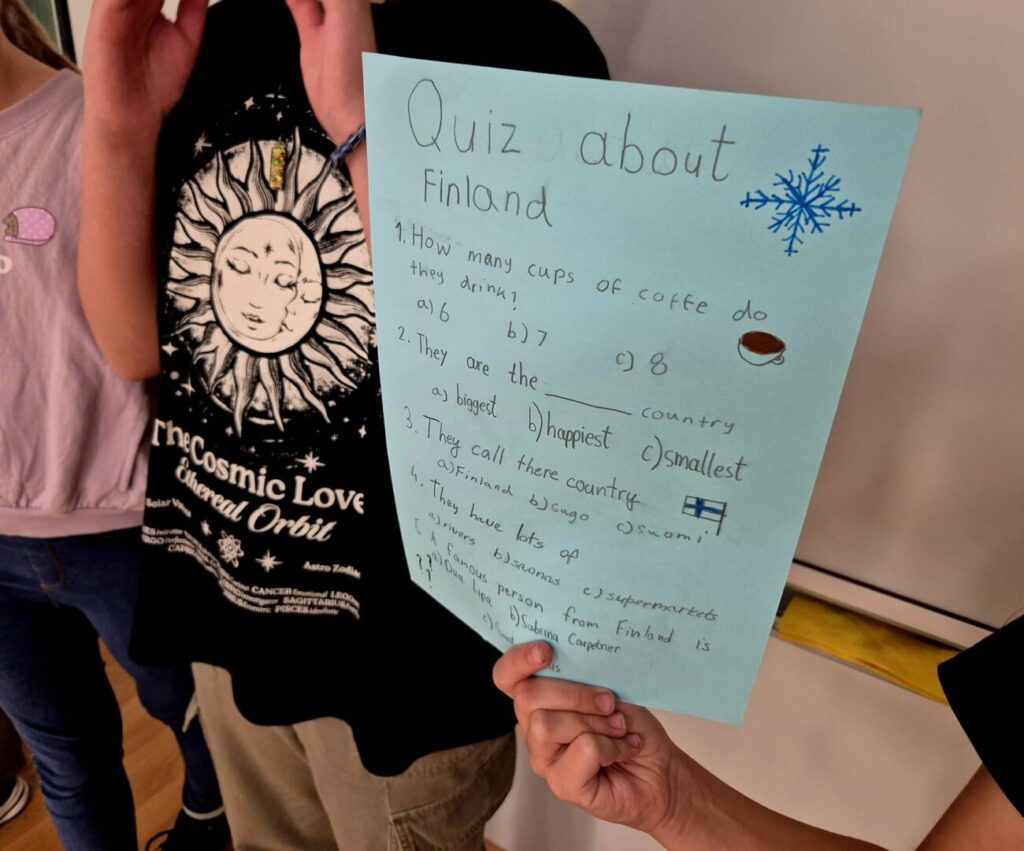 Quiz about
Finland
1. How many cups of coffe do
they drink?
a) 6 b) 7 c) 8
2. They are the ______ country
a) biggest b) happiest c) smallest
3. They call there country
a) Finland b) sugo c) suomi
4. They have lots of
a) rivers b) saonas c) supermarkets
A famous person from Finland is
a) Dua Lipa b) Sabrina Carpetner
c)
The Cosmic Love
Ethereal Orbit
Solar
Astro Zodia
CANCER Emotional
SAGITTARIUS
PISCES